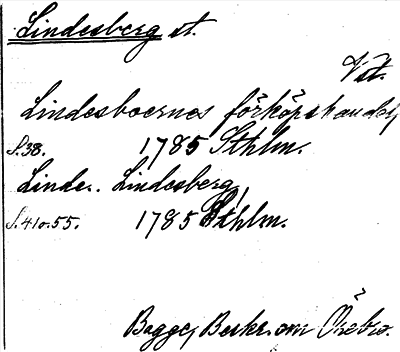 Lindesberg st.
Vstm.
Lindesboernes förköpshandel,
S. 38. 1785 Sthlm.
Linde. Lindesberg,
S. 41 o. 55. 1785 Sthlm.
Bagge, Beskr. om Örebro.